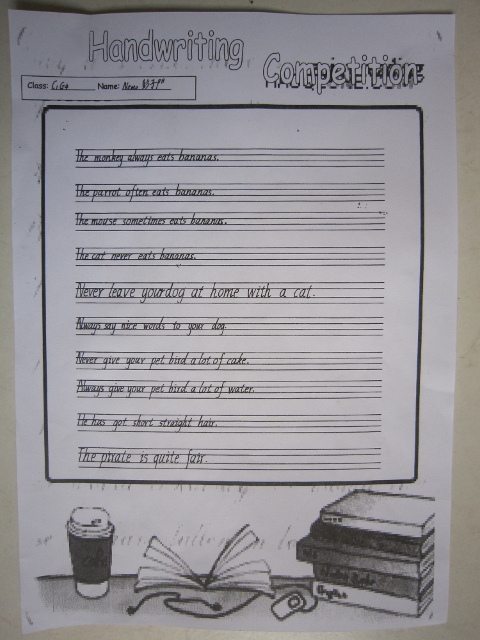 Handwriting
Competition
Class: Name:
The monkey always eats bananas.
The parrot often eats bananas.
The mouse sometimes eats bananas.
The cat never eats bananas.
Never leave your dog at home with a cat.
Always say nice words to your dog.
Never give your pet bird a lot of cake.
Always give your pet bird a lot of water.
He has got short straight hair.
The pirate is quite fair.